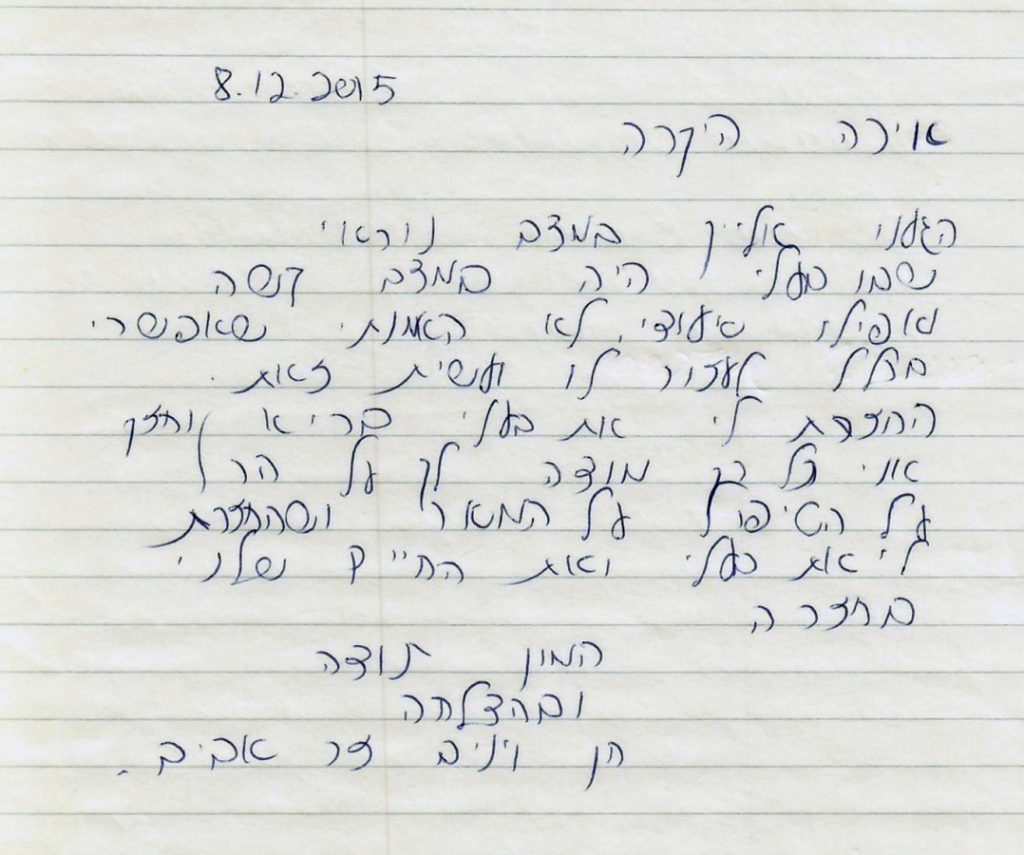 8.12.2015
אירה היקרה
הגעני אלייך במצב נוראי
נשמו בעלי היה במצב קשה
ואפילו סיעודי. לא האמנתי שאפשרי
בכלל לעזור לו ועשית זאת.
החזרת לי את בעלי בריא וחזק
אני כל כך מודה לך על הכל
על הטיפול על המסאז' ושהחזרת
לי את בעלי ואת החיים שלנו
בחזרה
המון תודה
ובהצלחה
חן ויניב אביב.